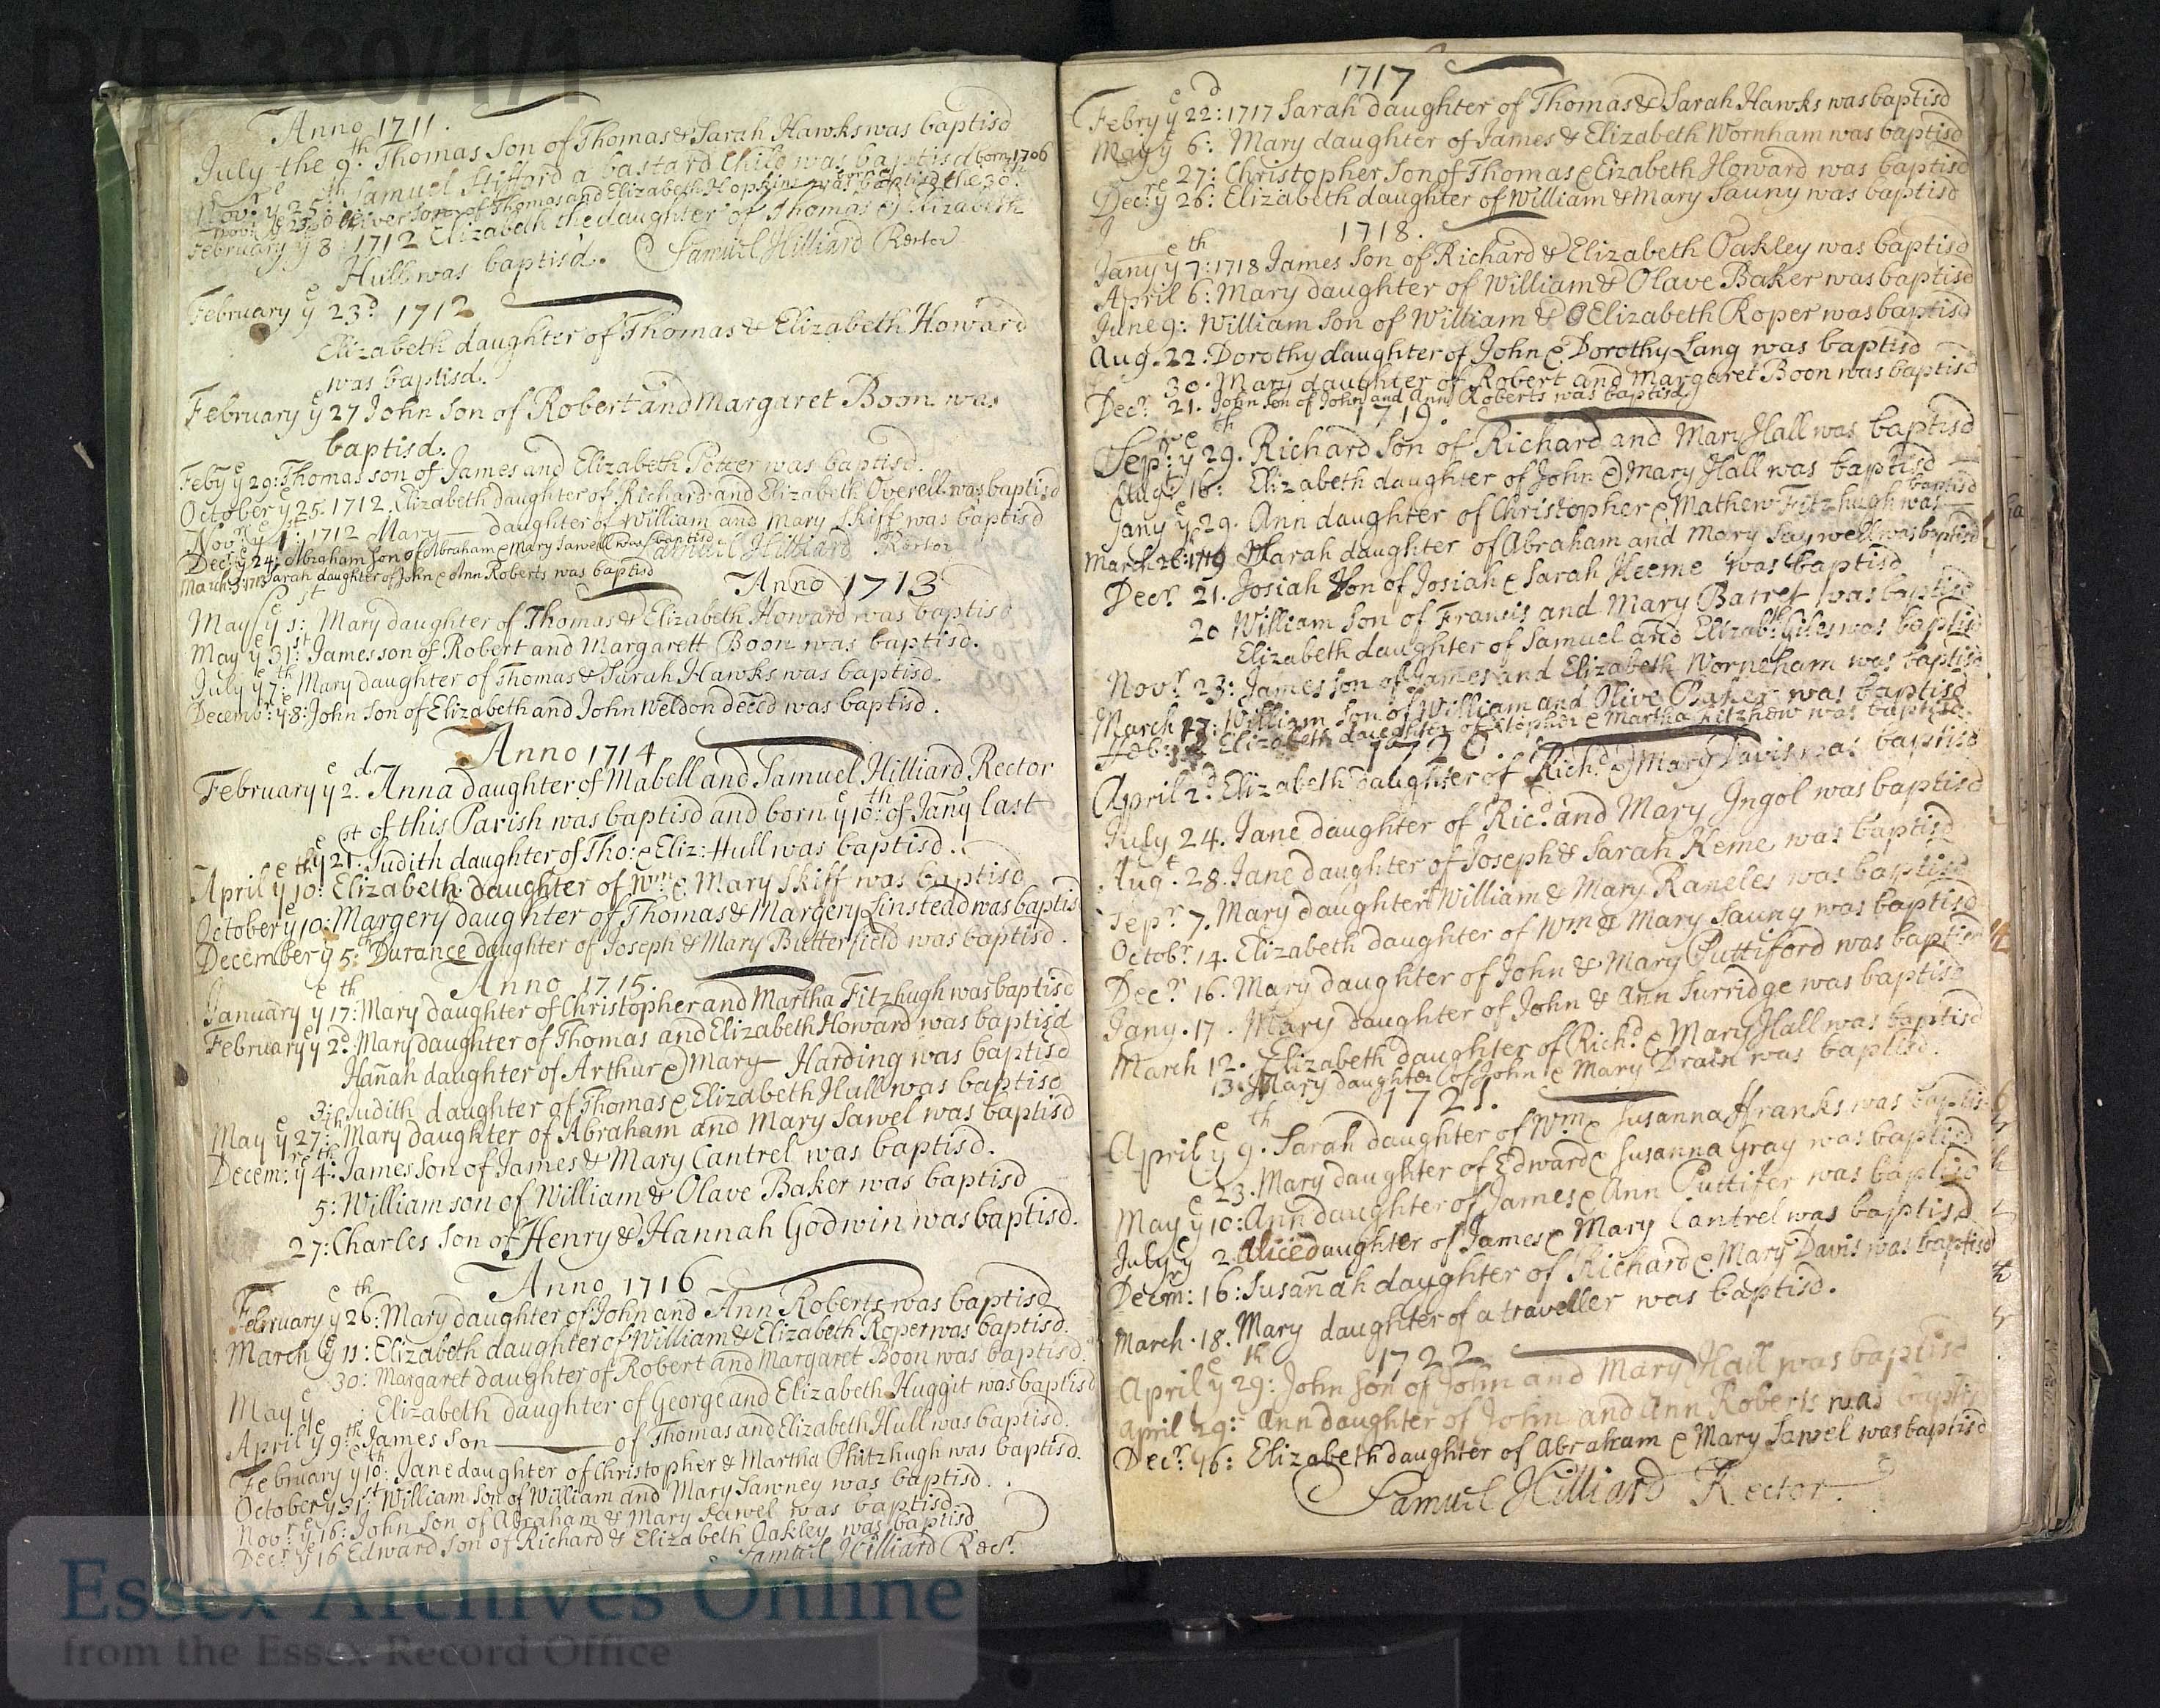 D/P 330/1/1
Anno 1711.
July the 9th. Thomas Son of Thomas & Sarah Hawks was baptisd
Novr. ye 25th Samuel Stifford a bastard Child was baptisd born 1706
Novr. ye 23d Oliver Son of Thomas and Elizabeth Hopkins was baptisd the 30th
February ye 8: 1712 Elizabeth the daughter of Thomas & Elizabeth
Hull was baptis'd. Samuel Hilliard Rector
February ye 23d. 1712
Elizabeth daughter of Thomas & Elizabeth Howard
was baptisd.
February ye 27 John Son of Robert and Margaret Boon was
baptisd.
Feby ye 29: Thomas son of James and Elizabeth Potter was baptisd.
October ye 25. 1712. Elizabeth daughter of Richard and Elizabeth Overell was baptisd
Novr. ye 1st: 1712 Mary daughter of William and Mary Skiff was baptisd
Decr. ye 24: Abraham Son of Abraham e Mary Sawell was baptisd Samuel Hilliard Rector
March 5 1713 Sarah daughter of John e Ann Roberts was baptisd
Anno 1713
May ye 1st: Mary daughter of Thomas & Elizabeth Howard was baptisd
May ye 31st: James son of Robert and Margarett Boon was baptisd.
July ye 7th: Mary daughter of Thomas & Sarah Hawks was baptisd.
Decembr: ye 8: John Son of Elizabeth and John Weldon deced was baptisd.
Anno 1714
February ye 2d. Anna daughter of Mabell and Samuel Hilliard Rector
of this Parish was baptisd and born ye 10th: of Jany last
ye 21st. Judith daughter of Tho: e Eliz: Hull was baptisd.
April ye 10th: Elizabeth daughter of Wm e Mary Skiff was baptisd
October ye 10: Margery daughter of Thomas & Margery Linstead was baptis
December ye 5th: Durance daughter of Joseph & Mary Butterfield was baptisd.
Anno 1715.
January ye 17th: Mary daughter of Christopher and Martha Fitzhugh was baptisd
February ye 2d: Mary daughter of Thomas and Elizabeth Howard was baptisd
Hañah daughter of Arthur e Mary Harding was baptisd
3: Judith daughter of Thomas e Elizabeth Hull was baptisd
May ye 27th: Mary daughter of Abraham and Mary Sawel was baptisd
Decemr: ye 4th: James Son of James & Mary Cantrel was baptisd.
5: William son of William & Olave Baker was baptisd
27: Charles Son of Henry & Hannah Godwin was baptisd.
Anno 1716
February ye 26th: Mary daughter of John and Ann Roberts was baptisd
March ye 11: Elizabeth daughter of William & Elizabeth Roper was baptisd.
30: Margaret daughter of Robert and Margaret Boon was baptisd.
May ye Elizabeth daughter of George and Elizabeth Huggit was baptisd
April ye 9th: James Son of Thomas and Elizabeth Hull was baptisd.
February ye 10th: Jane daughter of Christopher & Martha Phitzhugh was baptisd.
October ye 31st: William Son of William and Mary Sawney was baptisd.
Novr. ye 16: John Son of Abraham & Mary Sawel was baptisd.
Decr. ye 16 Edward Son of Richard & Elizabeth Oakley was baptisd
Samuel Hilliard Recr.
1717
Febry ye 22d: 1717 Sarah daughter of Thomas & Sarah Hawks was baptisd
May ye 6: Mary daughter of James & Elizabeth Wornham was baptisd
27: Christopher Son of Thomas e Elizabeth Howard was baptisd
Decr. ye 26: Elizabeth daughter of William & Mary Sauny was baptisd
1718.
Jany ye 7th: 1718 James Son of Richard & Elizabeth Oakley was baptisd
April 6: Mary daughter of William & Olave Baker was baptisd
June 9: William Son of William & Elizabeth Roper was baptisd
Aug. 22: Dorothy daughter of John e Dorothy Lang was baptisd
30. Mary daughter of Robert and Margaret Boon was baptisd
Decr. 21. John Son of John and Ann Roberts was baptisd
1719.
Sepr. ye 29th. Richard Son of Richard and Mary Hall was baptisd
Augt. 16: Elizabeth daughter of John e Mary Hall was baptisd
Jany ye 29. Ann daughter of Christopher e Mathew Fitzhugh was baptisd
March 26: 1719 Sarah daughter of Abraham and Mary Saywell was baptisd
Decr. 21. Josiah Son of Josiah e Sarah Heeme was baptisd
20 William Son of Francis and Mary Barret was baptisd
Elizabeth daughter of Samuel and Elizabth Giles was baptisd
Novr. 23: James Son of James and Elizabeth Worneham was baptisd
March 17: William Son of William and Olive Baker was baptisd
Elizabeth daughter of Xtopher e Martha Fitzhew was baptisd.
1720.
April 2d. Elizabeth daughter of Richd. e Mary Davis was baptisd
July 24. Jane daughter of Ricd. and Mary Ingol was baptisd
Augt. 28. Jane daughter of Joseph & Sarah Keme was baptisd
Sepr 7. Mary daughter William & Mary Raneles was baptisd
Octobr. 14. Elizabeth daughter of Wm & Mary Sauny was baptisd
Decr. 16. Mary daughter of John & Mary Puttiford was baptisd
Jany. 17. Mary daughter of John & Ann Surridge was baptisd
March 12. Elizabeth daughter of Richd. e Mary Hall was baptisd
13. Mary daughter of John e Mary Drain was baptisd.
1721.
April ye 9th. Sarah daughter of Wm e Susanna ffranks was baptis
23. Mary daughter of Edward e Susanna Gray was baptisd
May ye 10: Ann daughter of James e Ann Puttifer was baptisd
July ye 2. Alice daughter of James e Mary Cantrel was baptisd
Decmr: 16: Susañah daughter of Richard e Mary Davis was baptisd
March. 18. Mary daughter of a traveller was baptisd.
1722
April ye 29th: John Son of John and Mary Hall was baptisd
April 29: Ann daughter of John and Ann Roberts was baptis
Decr. 16: Elizabeth daughter of Abraham e Mary Sawel was baptisd
Samuel Hilliard Rector.
Essex Archives Online
from the Essex Record Office